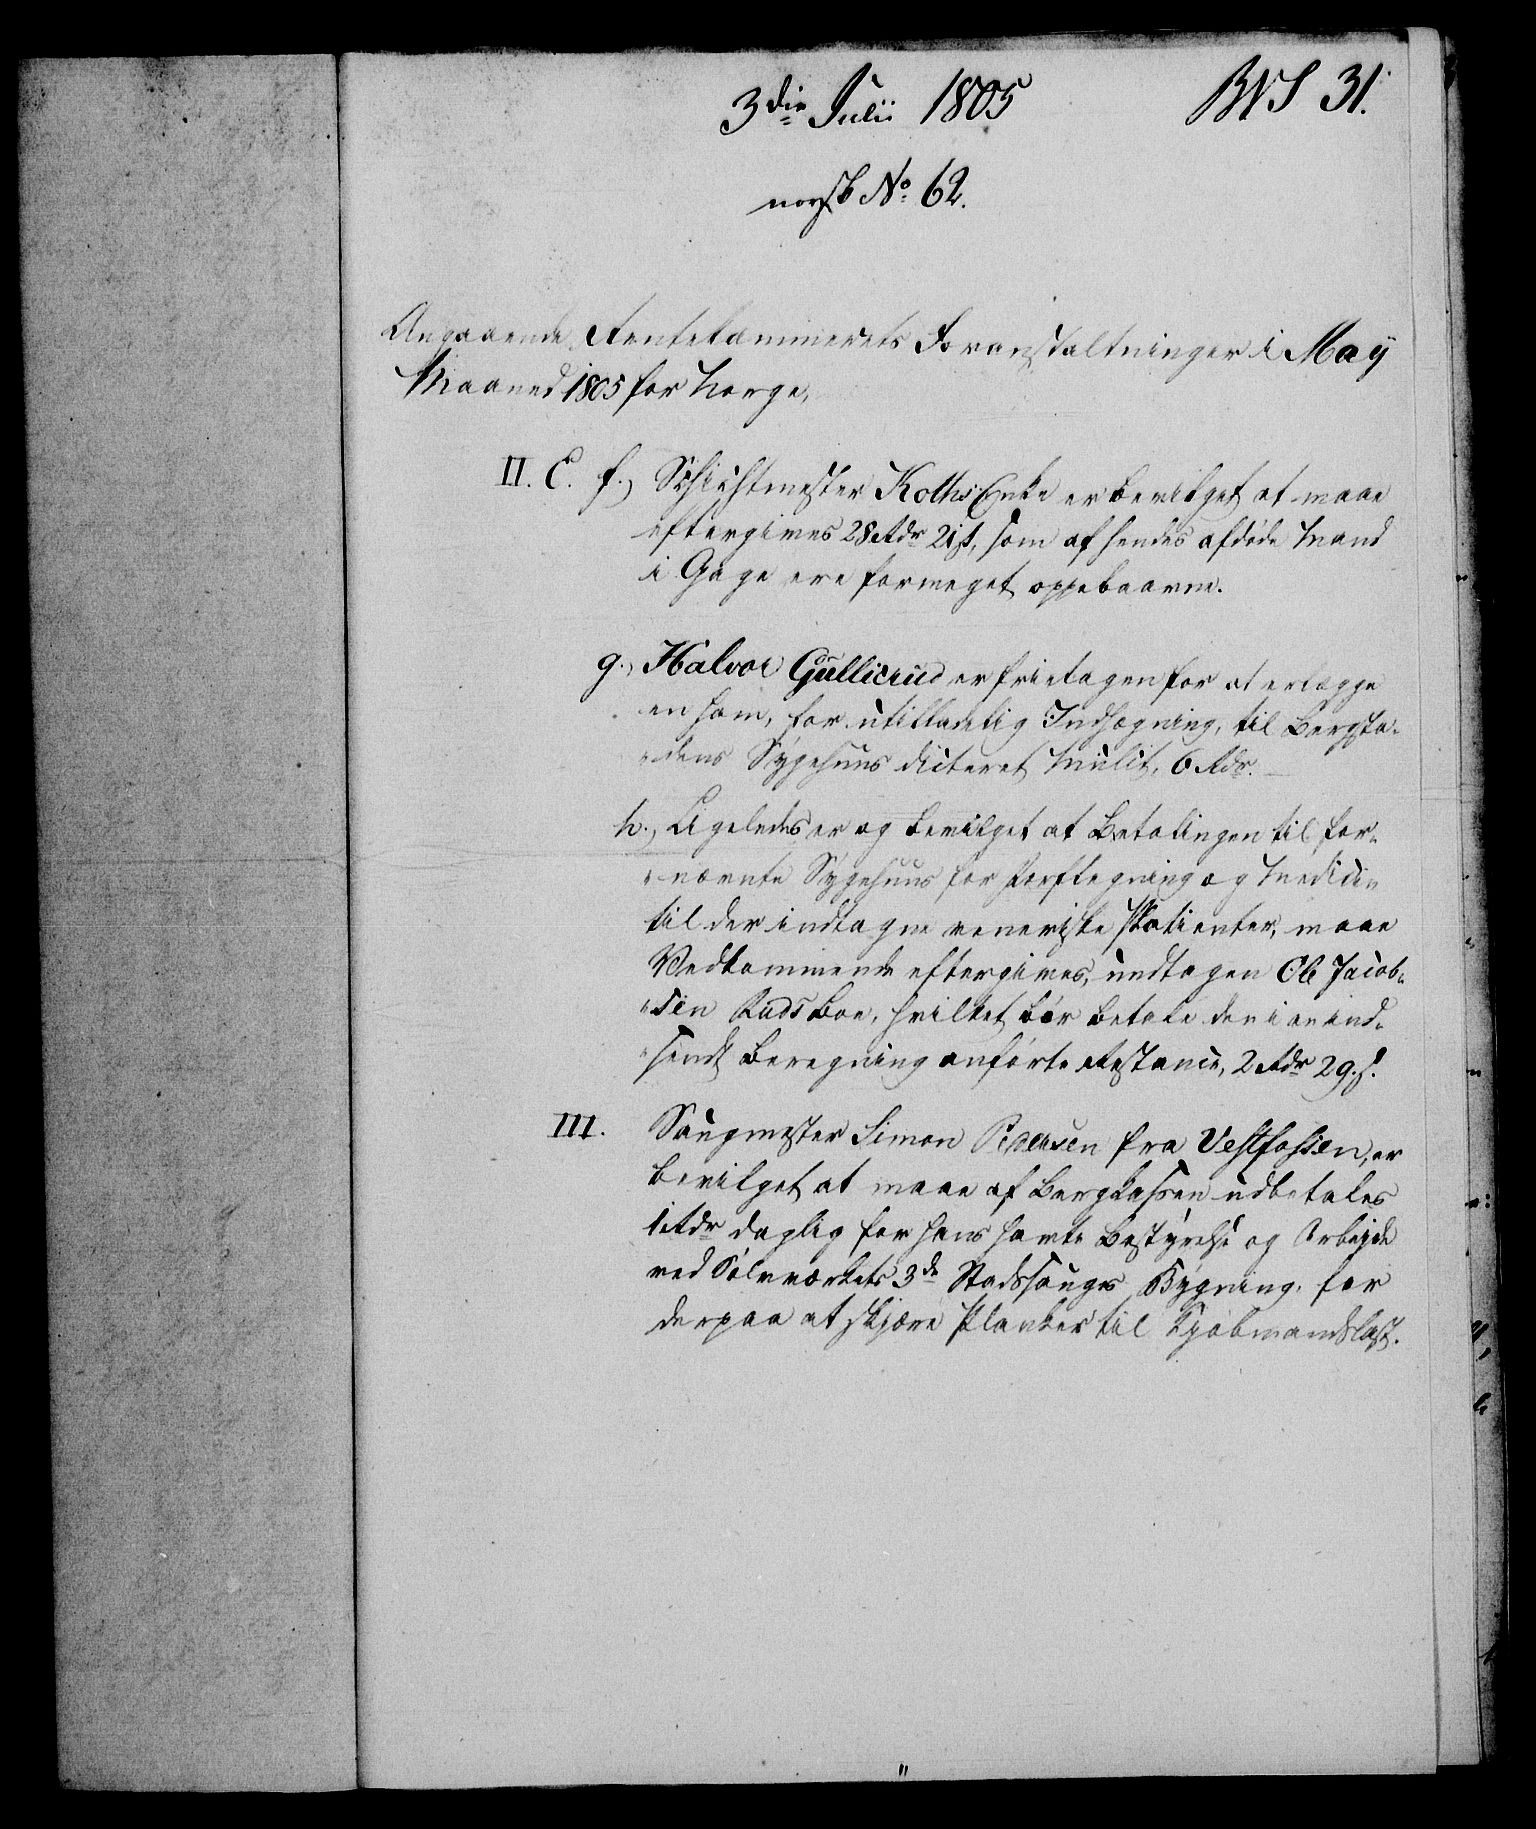 3die Julii 1805 BNS 31.
norsk No 62.
Angaaende Rentekammerets Foranstaltninger i Maÿ
Maaned 1805 for Norge,
II. C. f., Schichtmester Koths Enke er bevilget at maae
eftergives 28 Rdr 21 s, som af hendes afdøde Mand
i Gage ere formeget oppebaarne.
g., Halvor Gullicrud er frietagen for at erlægge
en ham, for utilladelig Indhøgning, til Bergsta-
dens Sygehuus dicteret Mulct, 6 Rdr.
h., Ligeledes er og bevilget at Betalingen til for-
nævnte Sygehuus for Forflegning og Medicin
til der indtagne veneriske Patienter, maae
Vedkommende eftergives, undtagen Ole Jacob-
sen Ruds Boe, hvilket bør betale den i en ind-
sendt Beregning anførte Restance, 2 Rdr 29 s.
III. Saugmester Simon Pedersen fra Vestfossen, er
bevilget at maae af Bergkassen udbetales
1 Rdr daglig for hans havte Bestyrelse og Arbejde
ved Sølvværkets 3de Stadssauges Bygning, for
derpaa at skjære Planker til Kjøbmandslast.